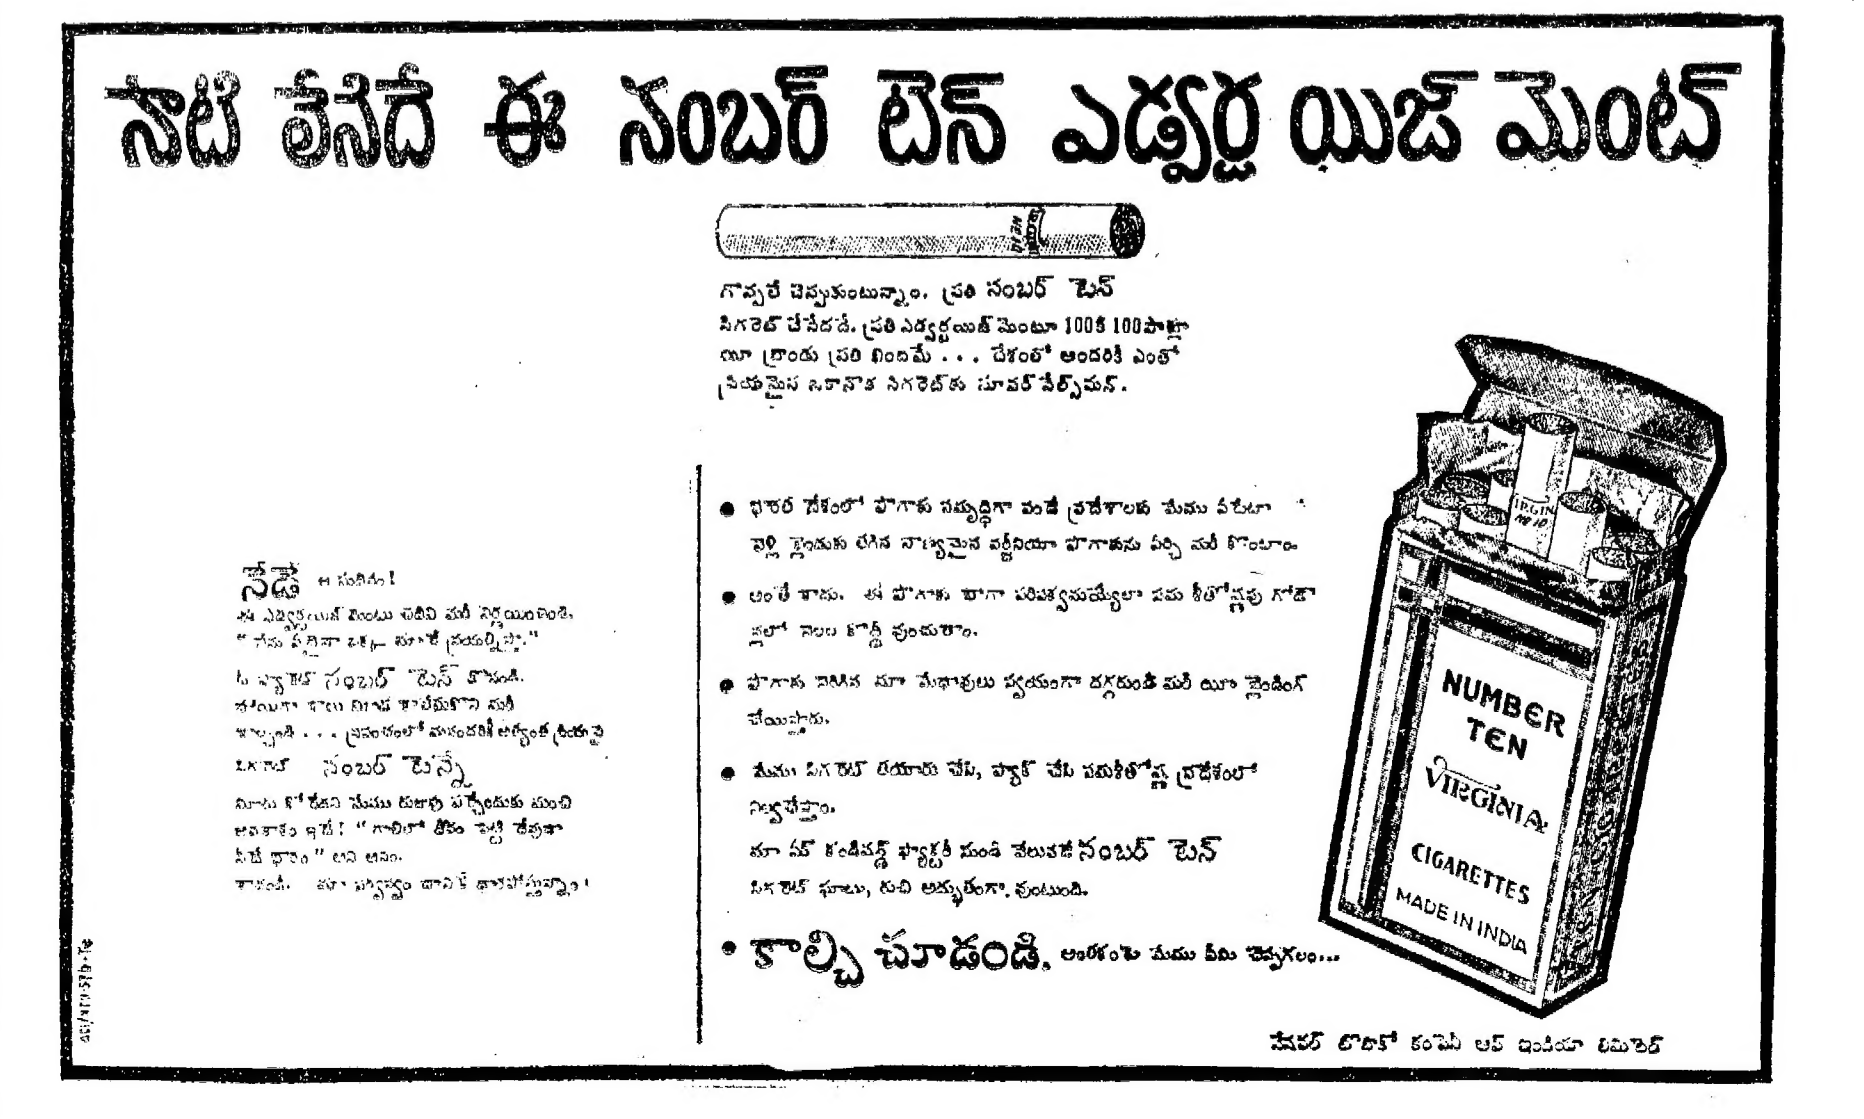 సాటి లేనిదే ఈ నంబర్ టెన్ ఎడ్వర్టయిజ్ మెంట్
గొప్పలే చెప్పుకుంటున్నాం. ప్రతి నంబర్ టెన్
సిగరెట్ చేసేదదే. ప్రతి ఎడ్వర్టయిజ్ మెంటూ 100కి 100పాళ్లూ
యీ బ్రాండు ప్రతి బింబమే . . . దేశంలో అందరికీ ఎంతో
ప్రియమైన ఒకానొక సిగరెట్‌కు సూపర్ సేల్స్‌మన్.
నేడే ఈ సుదినం!
ఈ ఎడ్వర్టయిజ్ మెంటు చదివి మరీ నిర్ణయించండి.
ఓ ప్యాకెట్ నంబర్ టెన్ కొనండి.
హాయిగా కాలు మీద కాలేసుకొని మరీ
కాల్చండి . . . ప్రపంచంలో మనందరికీ అత్యంత ప్రియమై
సిగరెట్ నంబర్ టెన్నే
మీరు కోరేదని మేము రుజువు పర్చేందుకు మంచి
అవకాశం ఇదే! “గాలిలో దీపం పెట్టి దేవుడా
నీదే భారం” అని అనం.
కాదండి. మా సర్వస్వం దానికే ధారపోస్తున్నాం!
• భారత దేశంలో పొగాకు సమృద్ధిగా పండే ప్రదేశాలకు మేము పనిగా
వెళ్లి బ్లెండుకు తగిన నాణ్యమైన వర్జీనియా పొగాకును ఏర్చి మరీ కొంటాం.
• అంతే కాదు. ఈ పొగాకు బాగా పరిపక్వమయ్యేలా సమ శీతోష్ణపు గోడౌ
న్లలో నెలల కొద్దీ వుంచుతాం.
• పొగాకు తెలిసిన మా మేధావులు స్వయంగా దగ్గరుండి మరీ యీ బ్లెండింగ్
చేయిస్తారు.
• మేము సిగరెట్ తయారు చేసి, ప్యాక్ చేసి సమశీతోష్ణ ప్రదేశంలో
నిల్వచేస్తాం.
మా ఎయిర్ కండిషన్డ్ ఫ్యాక్టరీ నుండి వెలువడే నంబర్ టెన్
సిగరెట్ ఘాటు, రుచి అద్భుతంగా వుంటుంది.
• కాల్చి చూడండి. అంతకంటె మేము ఏమి చెప్పగలం...
NUMBER
TEN
VIRGINIA
CIGARETTES
MADE IN INDIA
నేషనల్ టొబాకో కంపెనీ ఆఫ్ ఇండియా లిమిటెడ్